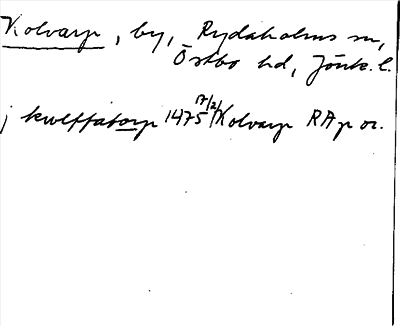 Kolvarp, by, Rydaholms sn,
Östbo hd, Jönk. l.
j kwlffatorp 1475 17/2/Kolvarp RAp or.